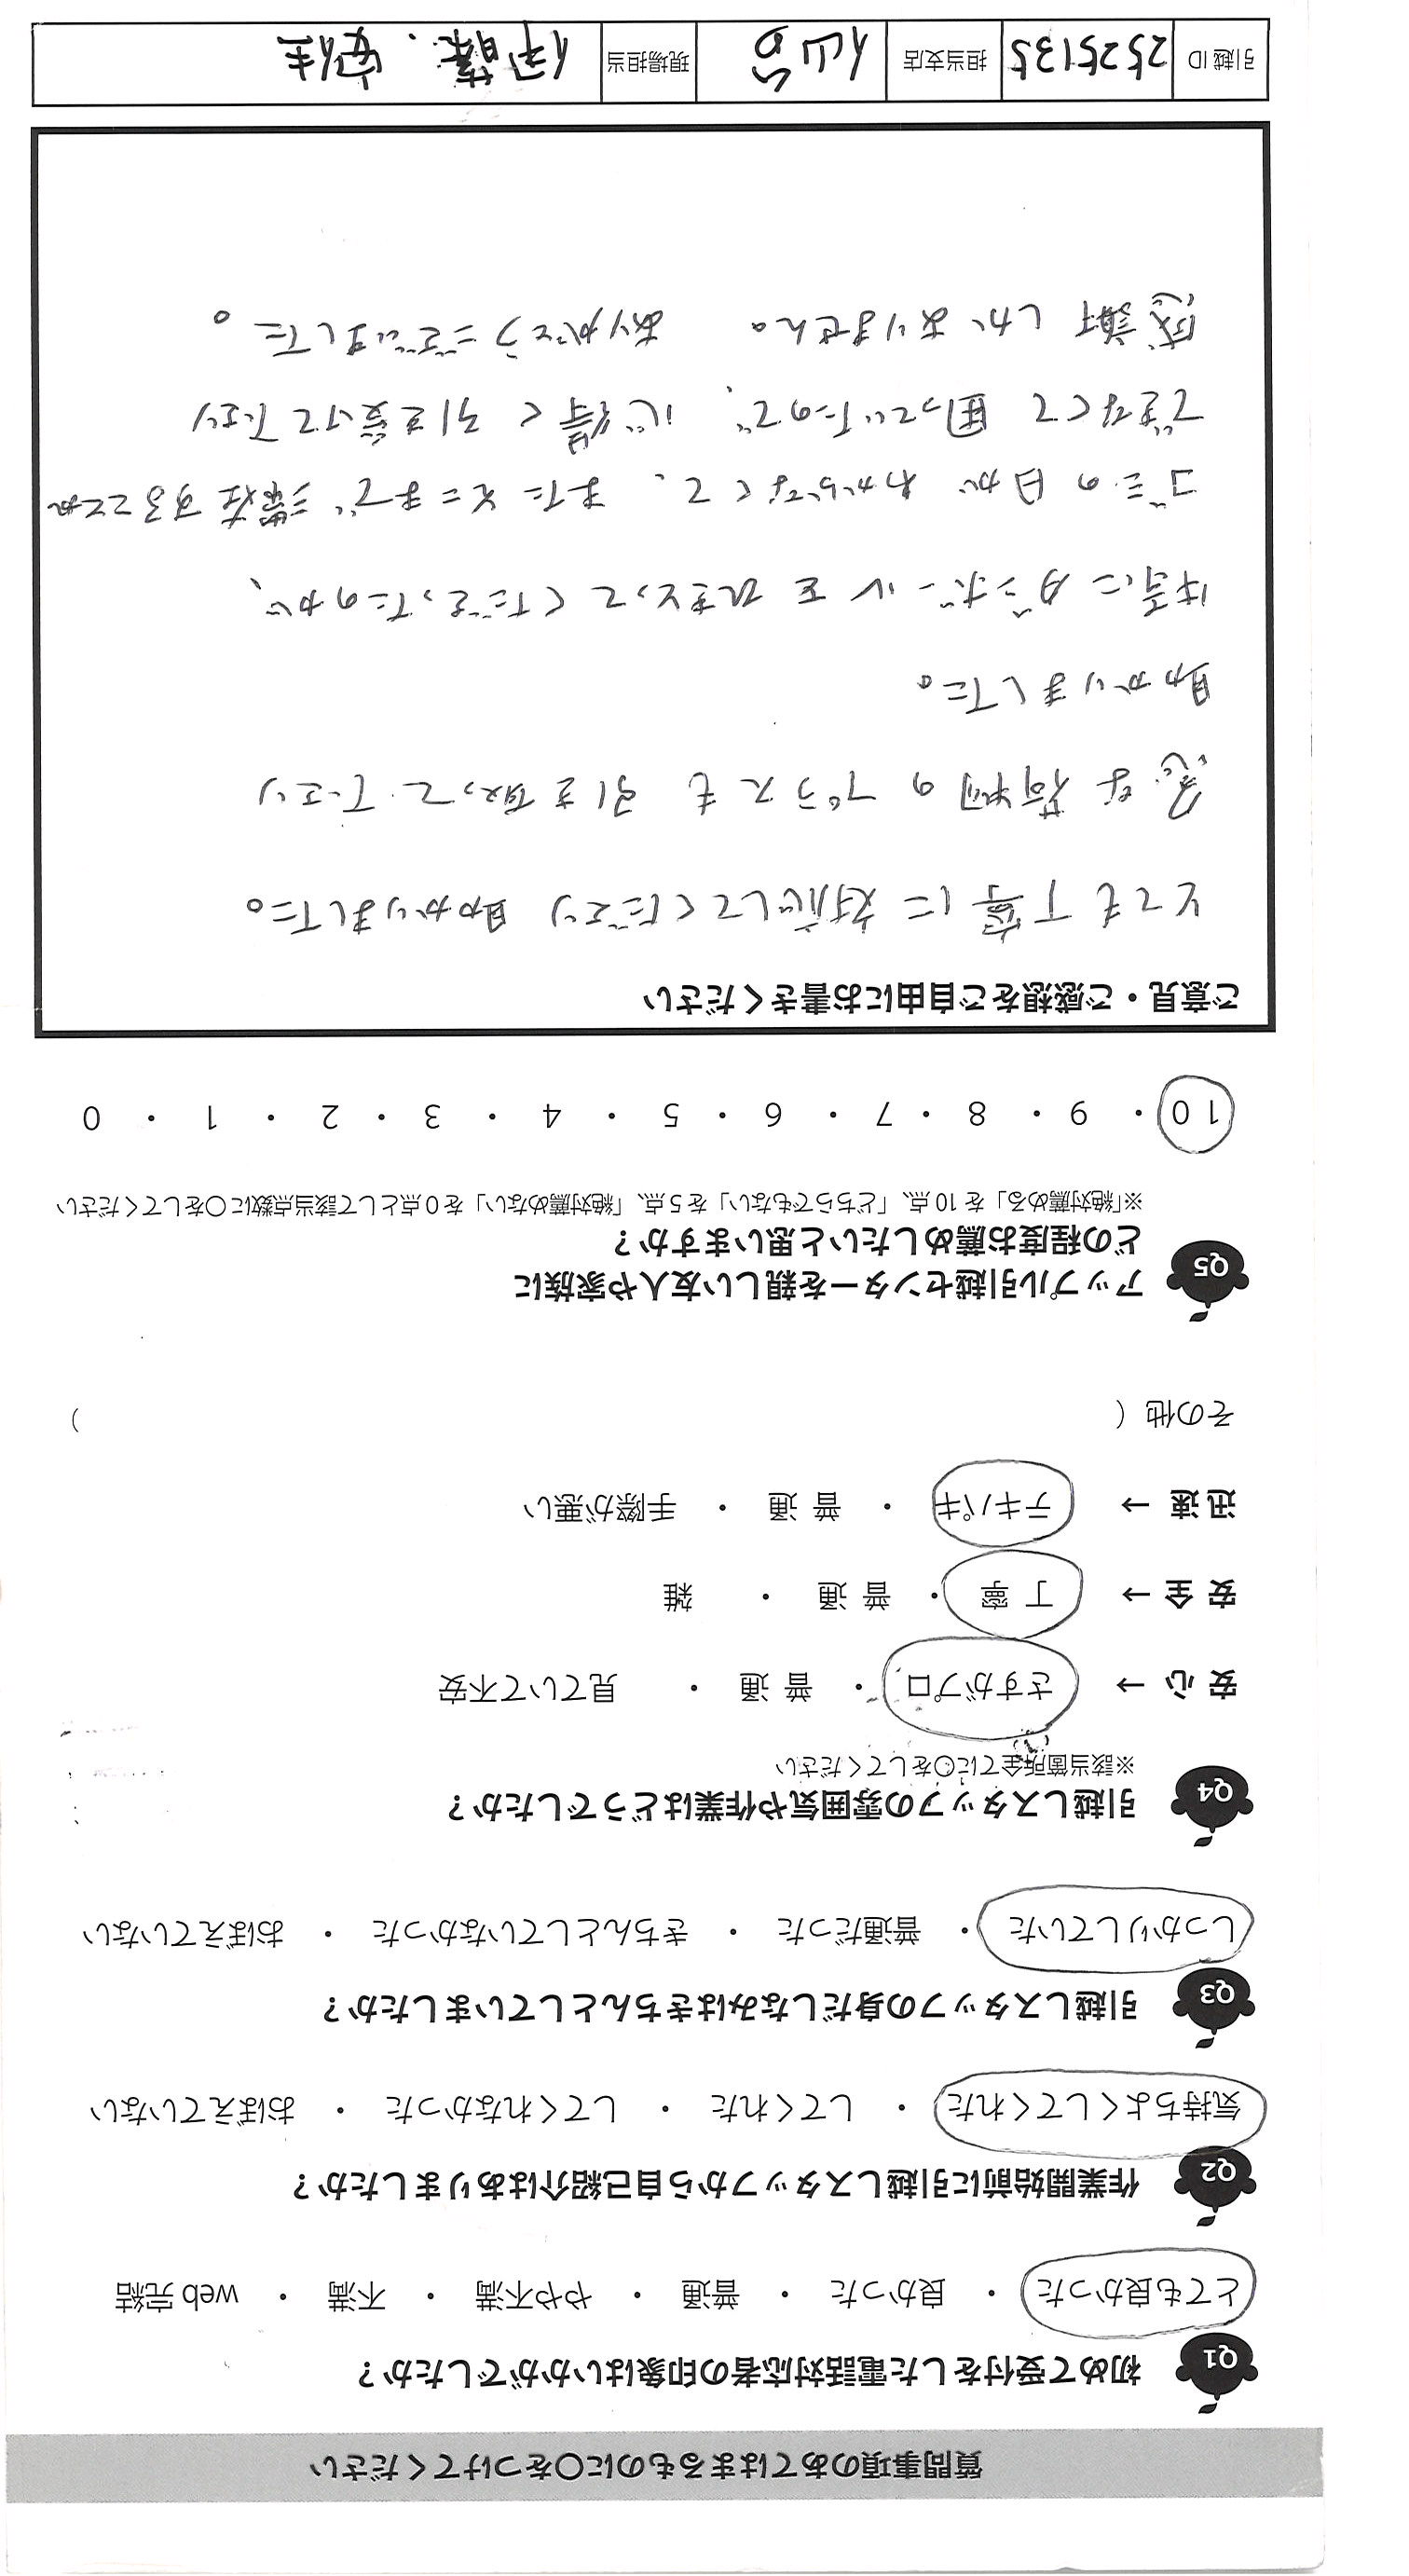 質問事項のあてはまるものに○をつけてください
Q1 初めて受付をした電話対応者の印象はいかがでしたか？
とても良かった ・ 良かった ・ 普通 ・ やや不満 ・ 不満 ・ web 完結
Q2 作業開始前に引越しスタッフから自己紹介はありましたか？
気持ちよくしてくれた ・ してくれた ・ してくれなかった ・ おぼえていない
Q3 引越しスタッフの身だしなみはきちんとしていましたか？
しっかりしていた ・ 普通だった ・ きちんとしていなかった ・ おぼえていない
Q4 引越しスタッフの雰囲気や作業はどうでしたか？
※該当箇所全てに○をしてください
安 心 → さすがプロ ・ 普 通 ・ 見ていて不安
安 全 → 丁 寧 ・ 普 通 ・ 雑
迅 速 → テキパキ ・ 普 通 ・ 手際が悪い
その他（ ）
Q5 アップル引越センターを親しい友人や家族に
どの程度お薦めしたいと思いますか？
※「絶対薦める」を 10 点、「どちらでもない」を 5 点、「絶対薦めない」を 0 点として該当点数に○をしてください
10 ・ 9 ・ 8 ・ 7 ・ 6 ・ 5 ・ 4 ・ 3 ・ 2 ・ 1 ・ 0
ご意見・ご感想をご自由にお書きください
とても丁寧に対応してくださり助かりました。
急な荷物のプラスも引き取って下さり
助かりました。
ダンボールをひきとってくださったのが、
ゴミの日がわからなくて、またそこまで滞在することが
できなくて困っていたので、心得く引き受けて下さり
感謝しかありません。 ありがとうございました。
引越 ID 2525135 担当支店 仙台 現場担当 伊藤、安住